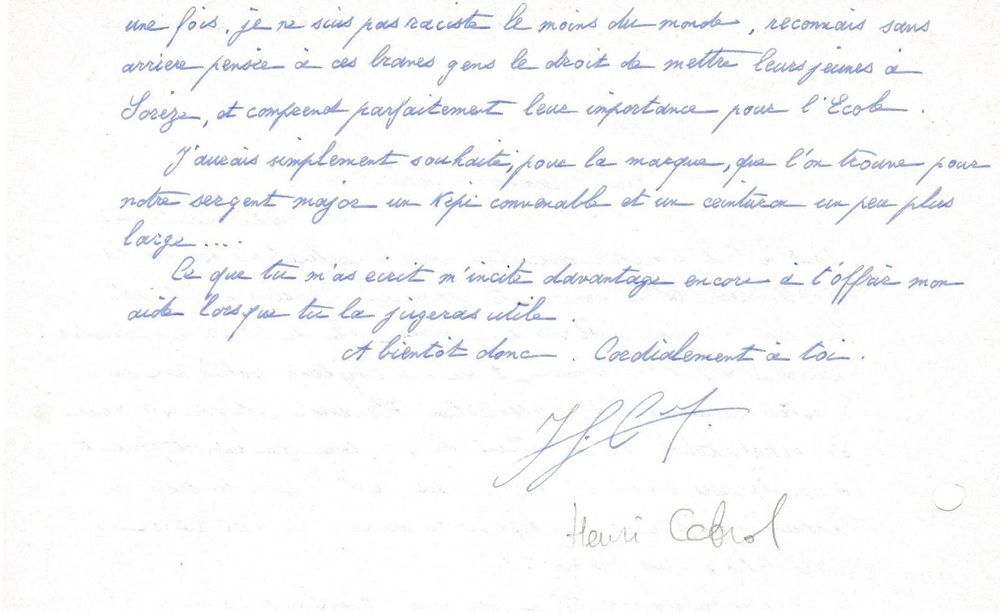 une fois, je ne suis pas raciste le moins du monde, reconnais sans
arriere pensée à ces braves gens le droit de mettre leurs jeunes à
Sorèze, et comprend parfaitement leur importance pour l'Ecole.
J'aurais simplement souhaité, pour la marque, que l'on trouve pour
notre sergent major un Képi convenable et un ceinturon un peu plus
large....
Ce que tu m'as ecrit m'incite davantage encore à t'offrir mon
aide lorsque tu la jugeras utile.
A bientôt donc. Cordialement à toi.
Henri Cabrol